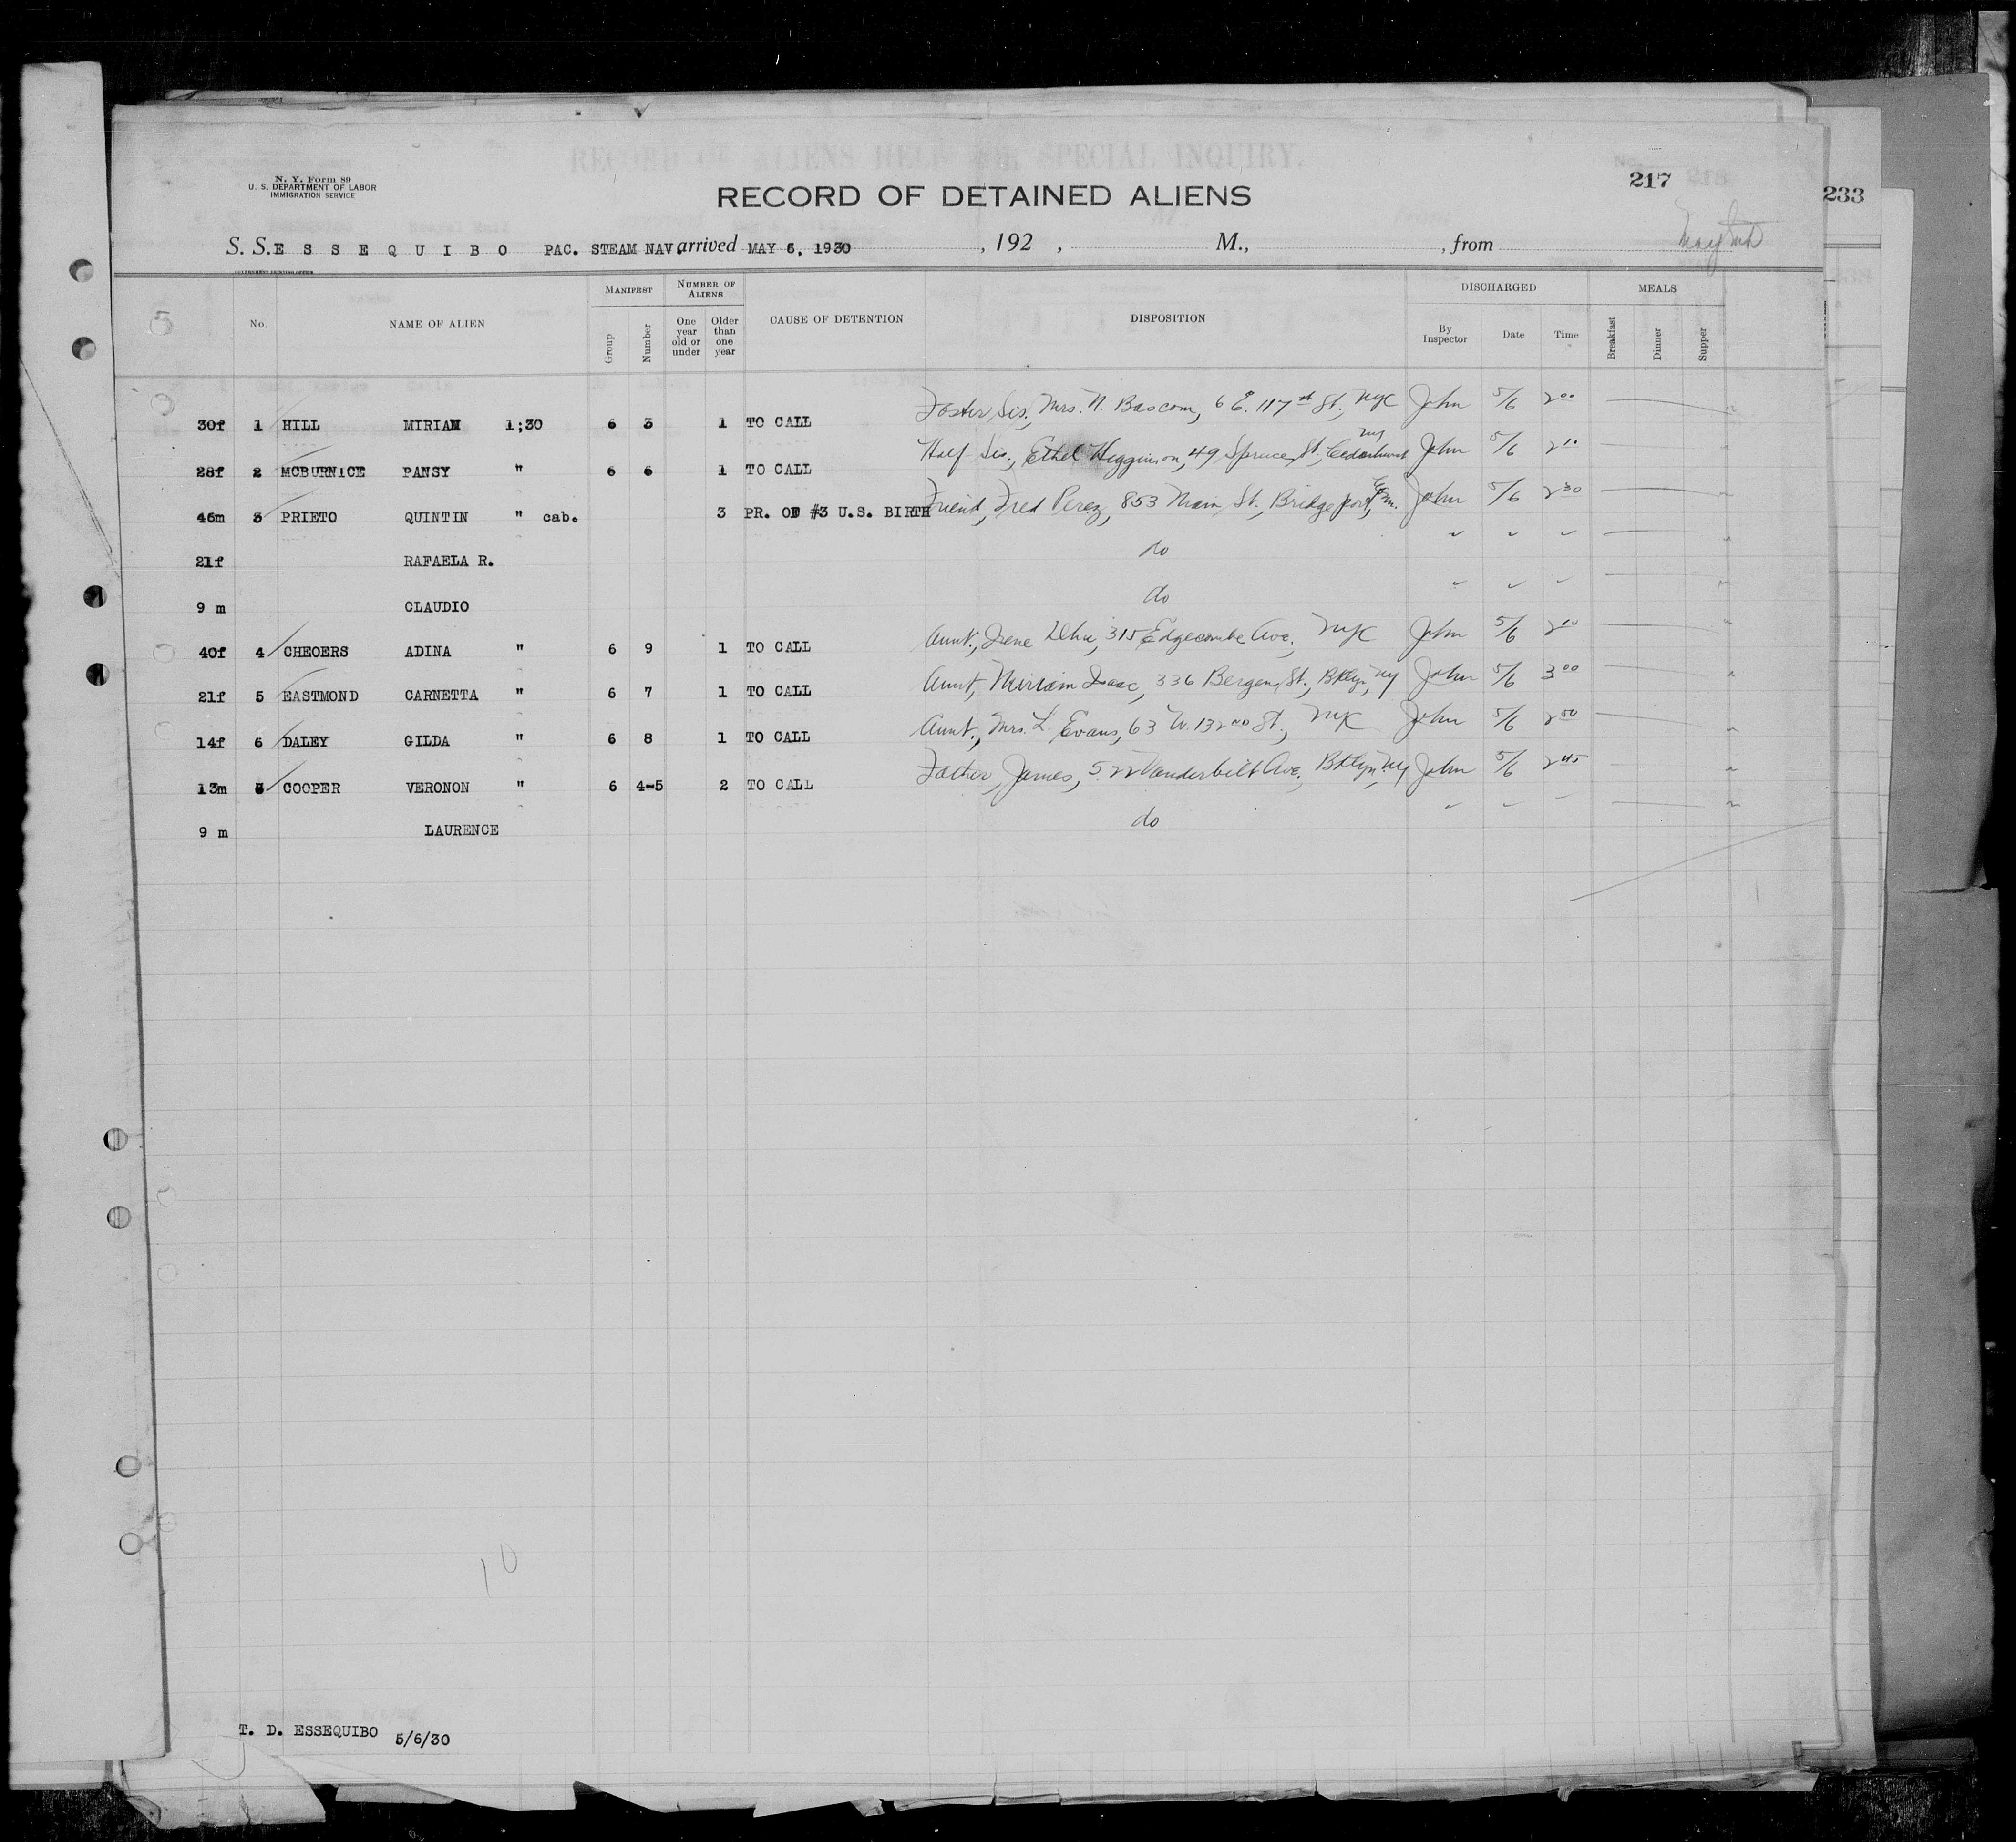 RECORD OF ALIENS HELD FOR SPECIAL INQUIRY.
N. Y. Form 89
U. S. DEPARTMENT OF LABOR
IMMIGRATION SERVICE
RECORD OF DETAINED ALIENS
217
233
S. S. E S S E Q U I B O PAC. STEAM NAV. arrived MAY 6, 1930 , 192 , M., , from
GOVERNMENT PRINTING OFFICE
No. NAME OF ALIEN MANIFEST Group Number NUMBER OF ALIENS One year old or under Older than one year CAUSE OF DETENTION DISPOSITION DISCHARGED By Inspector Date Time MEALS Breakfast Dinner Supper
30f 1 HILL MIRIAM 1;30 6 3 1 TO CALL Foster Sis., Mrs. N. Bascom, 6 E. 117th St., NYC John 5/6 2 00
28f 2 MCBURNICE PANSY " 6 6 1 TO CALL Half Sis., Ethel Higginson, 49 Spruce St., Cedarhurst NY John 5/6 2 10
46m 3 PRIETO QUINTIN " cab. 3 PR. OF #3 U.S. BIRTH Friend, Fred Perez, 853 Main St., Bridgeport, Conn. John 5/6 2 30
21f RAFAELA R. do
9 m CLAUDIO do
40f 4 CHEOERS ADINA " 6 9 1 TO CALL Aunt, Irene 315 Edgecombe Ave., NYC John 5/6 2 10
21f 5 EASTMOND CARNETTA " 6 7 1 TO CALL Aunt, Miriam Isaac, 336 Bergen St., Bklyn, NY John 5/6 3 00
14f 6 DALEY GILDA " 6 8 1 TO CALL Aunt, Mrs. L. Evans, 63 W. 132nd St., NYC John 5/6 2 50
13m COOPER VERONON " 6 4-5 2 TO CALL Father, James, 522 Vanderbilt Ave., Bklyn, NY John 5/6 2 45
9 m LAURENCE do
10
T. D. ESSEQUIBO 5/6/30